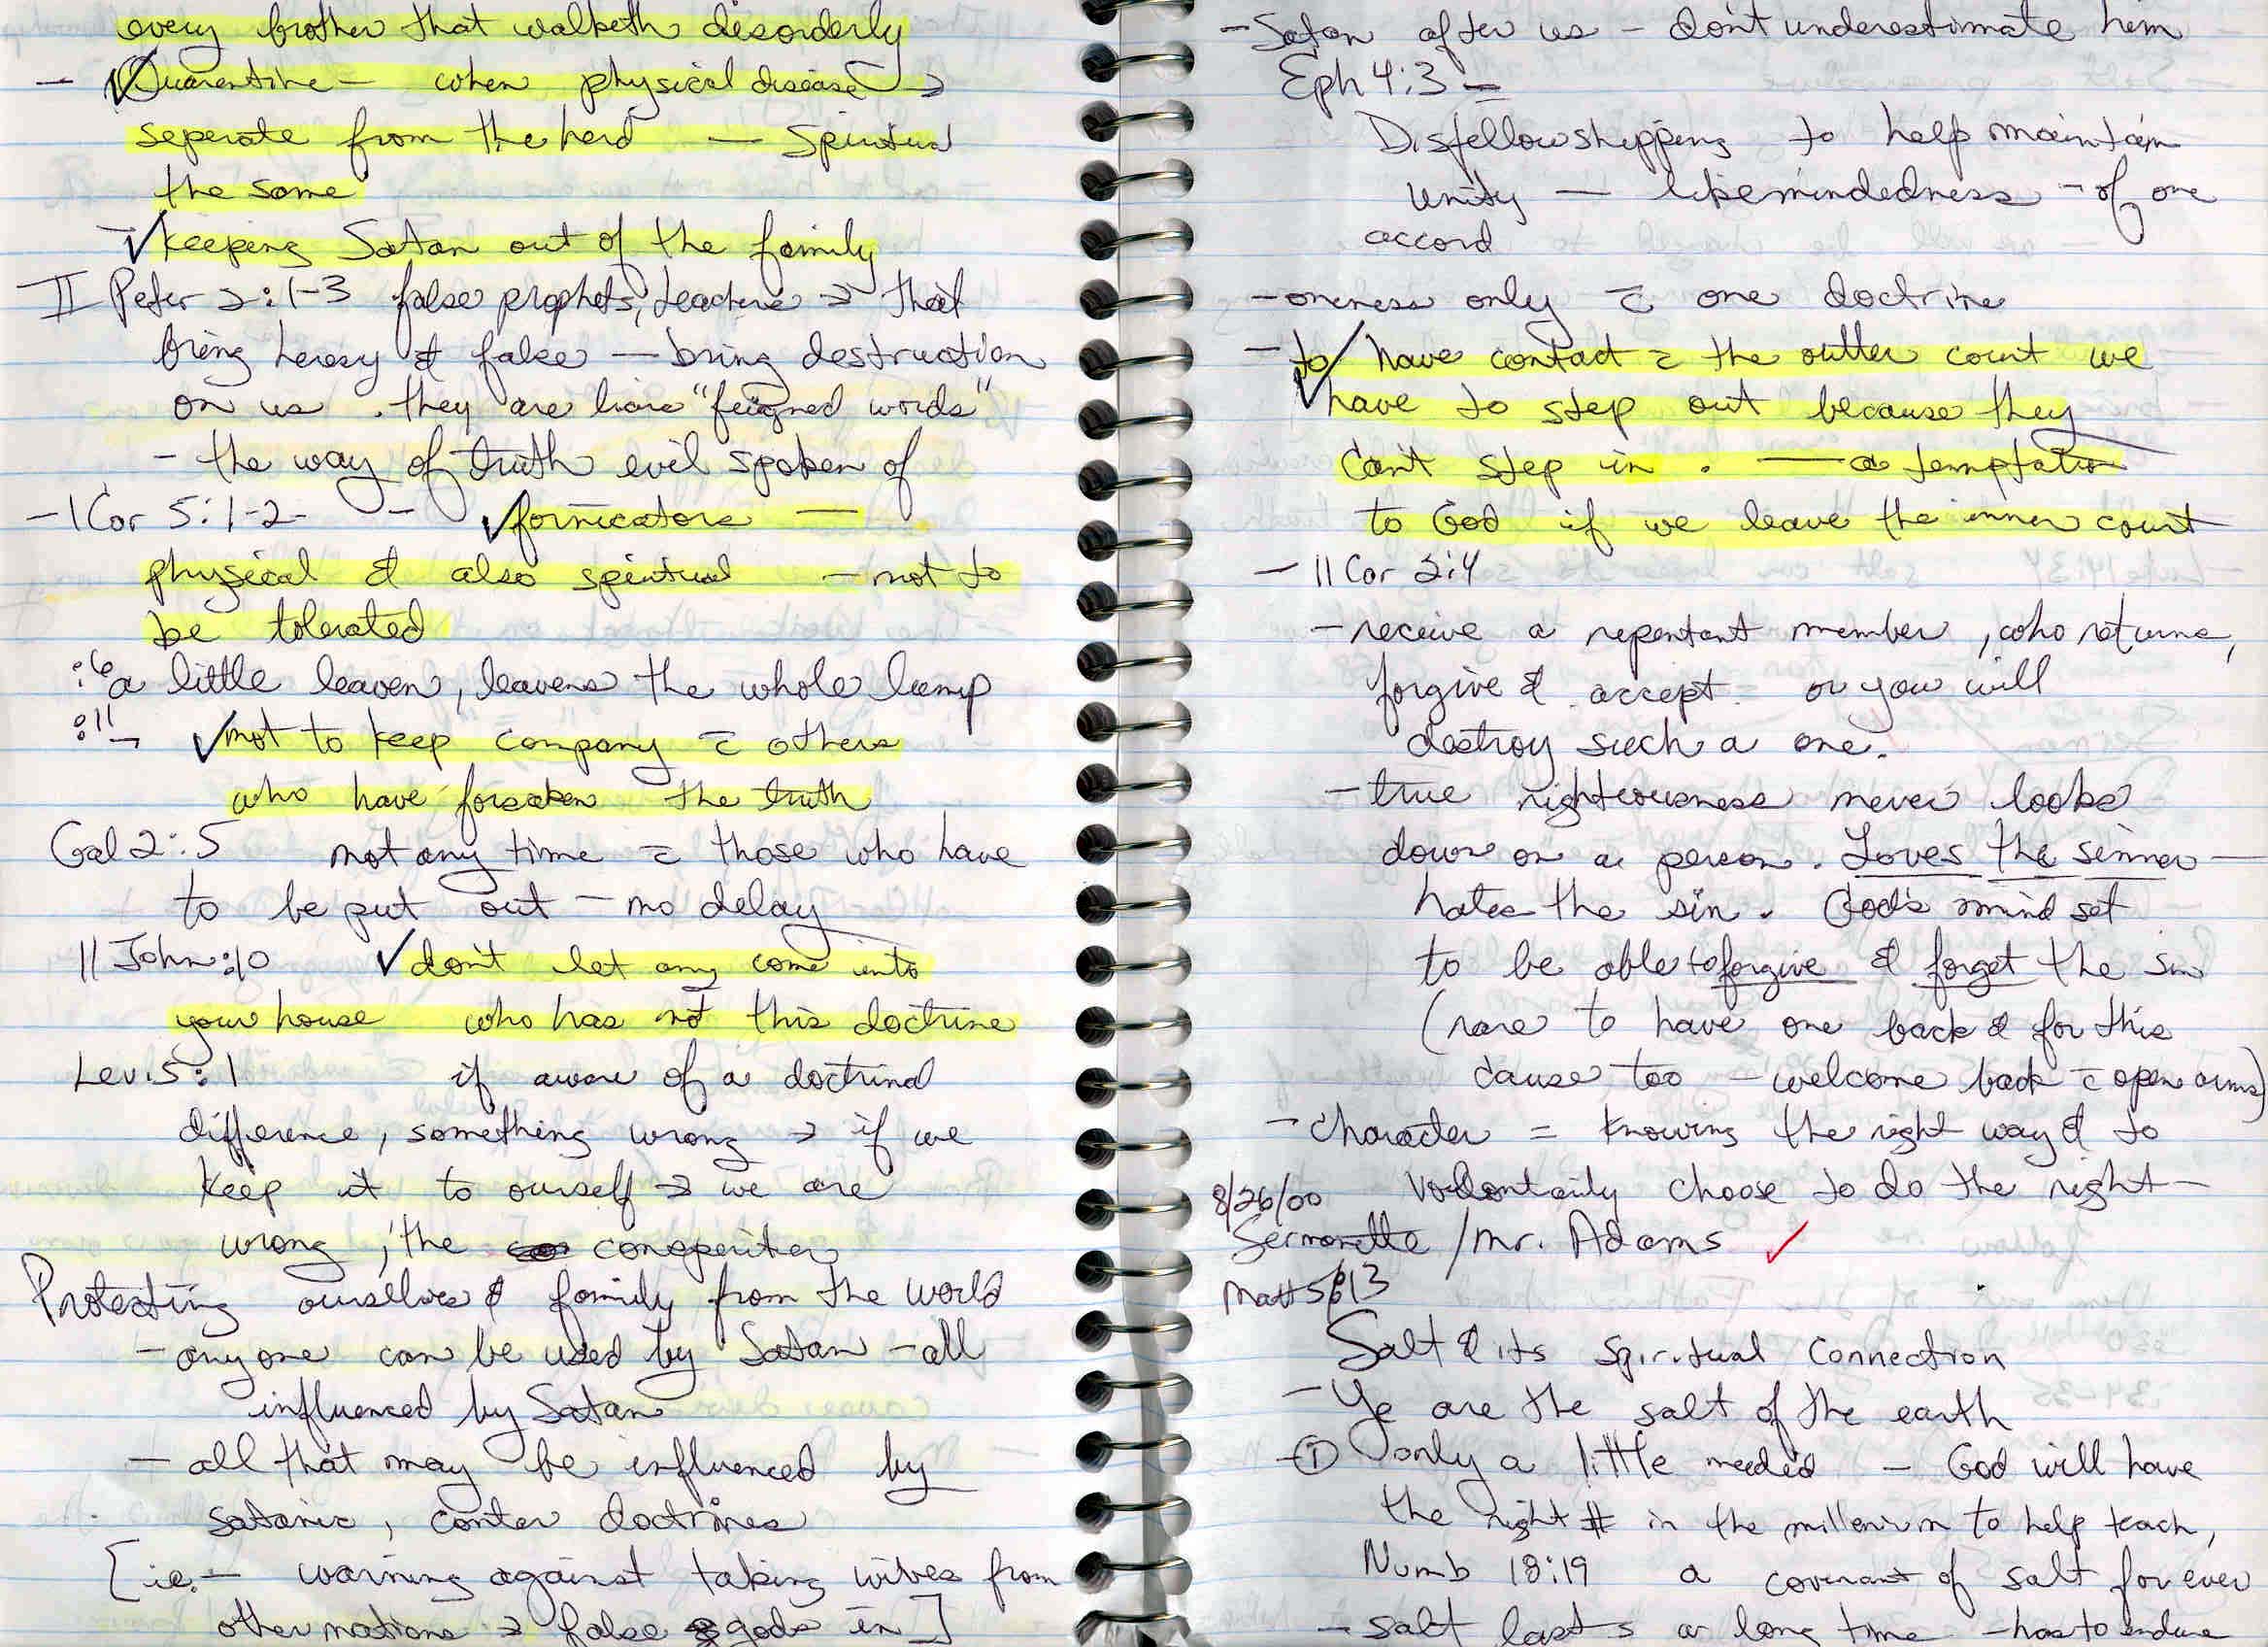 every brother that walketh disorderly
- Quarentine - when physical disease →
seperate from the herd - Spiritual
the same
- keeping Satan out of the family
II Peter 2:1-3 false prophets, teachers → that
bring heresy & false - bring destruction
on us. they are liars "feigned words"
- the way of truth evil spoken of
- 1 Cor 5:1-2 - - fornicators -
physical & also spiritual - not to
be tolerated
:6 a little leaven, leavens the whole lump
:11 - not to keep company c̄ others
who have forsaken the truth
Gal 2:5 not any time c̄ those who have
to be put out - no delay
II John:10 don't let any come into
your house who has not this doctrine
Lev. 5:1 if aware of a doctrinal
difference, something wrong → if we
keep it to ourself → we are
wrong, the
Protecting ourselves & family from the world
- anyone can be used by Satan - all
influenced by Satan
- all that may be influenced by
satanic, conter doctrines
[ie. - warning against taking wives from
other nations → false gods in]
- Satan after us - don't underestimate him
Eph 4:3 -
Disfellowshipping to help maintain
Unity - likemindedness - of one
accord
- oneness only c̄ one doctrine
- to have contact c̄ the outter court we
have to step out because they
can't step in. - a temptation
to God if we leave the inner court
- II Cor 2:4
- receive a repentant member, who returns,
forgive & accept - or you will
destroy such a one.
- true righteousness never looks
down on a person. Loves the sinner -
hates the sin. God's mind set
to be able to forgive & forget the sin
(rare to have one back & for this
cause too - welcome back c̄ open arms)
- Character = knowing the right way & to
volontarily choose to do the right -
8/26/00
Sermonette / Mr. Adams ✓
Matt 5:13
Salt & its Spiritual Connection
- Ye are the salt of the earth
- ① only a little needed - God will have
the right # in the millenium to help teach,
Numb 18:19 a covenant of salt for ever
- salt lasts a long time - has to endure